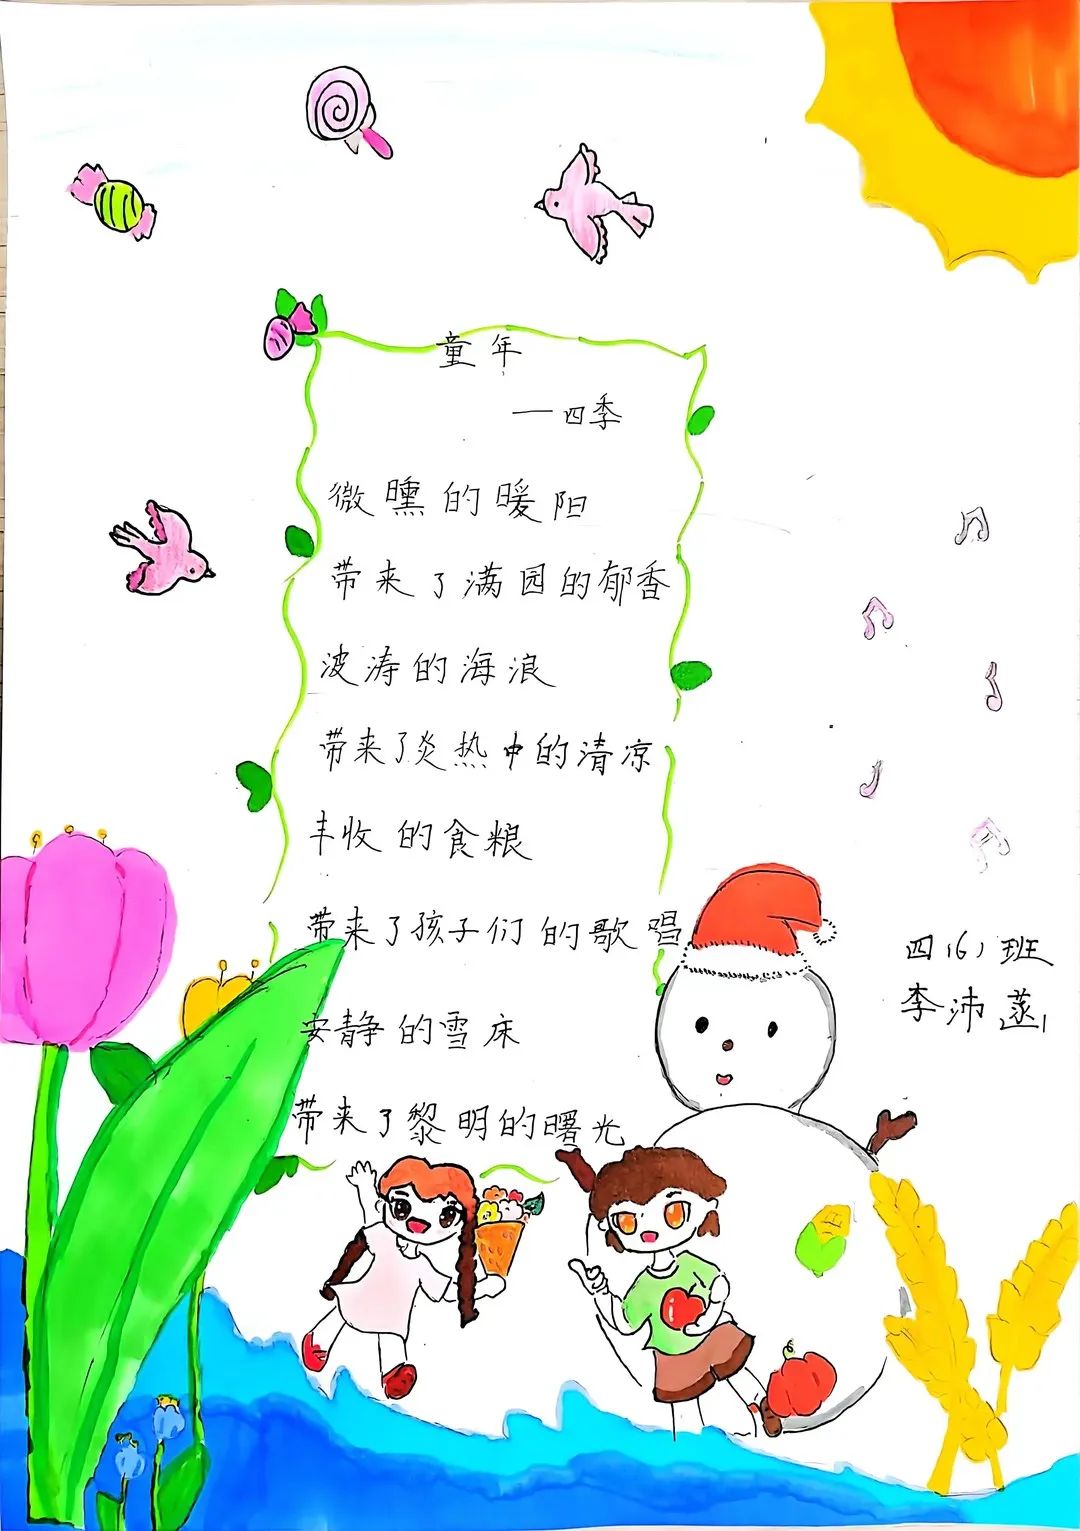 童年
—四季
微曛的暖阳
带来了满园的郁香
波涛的海浪
带来了炎热中的清凉
丰收的食粮
带来了孩子们的歌唱
安静的雪床
带来了黎明的曙光
四(6)班
李沛